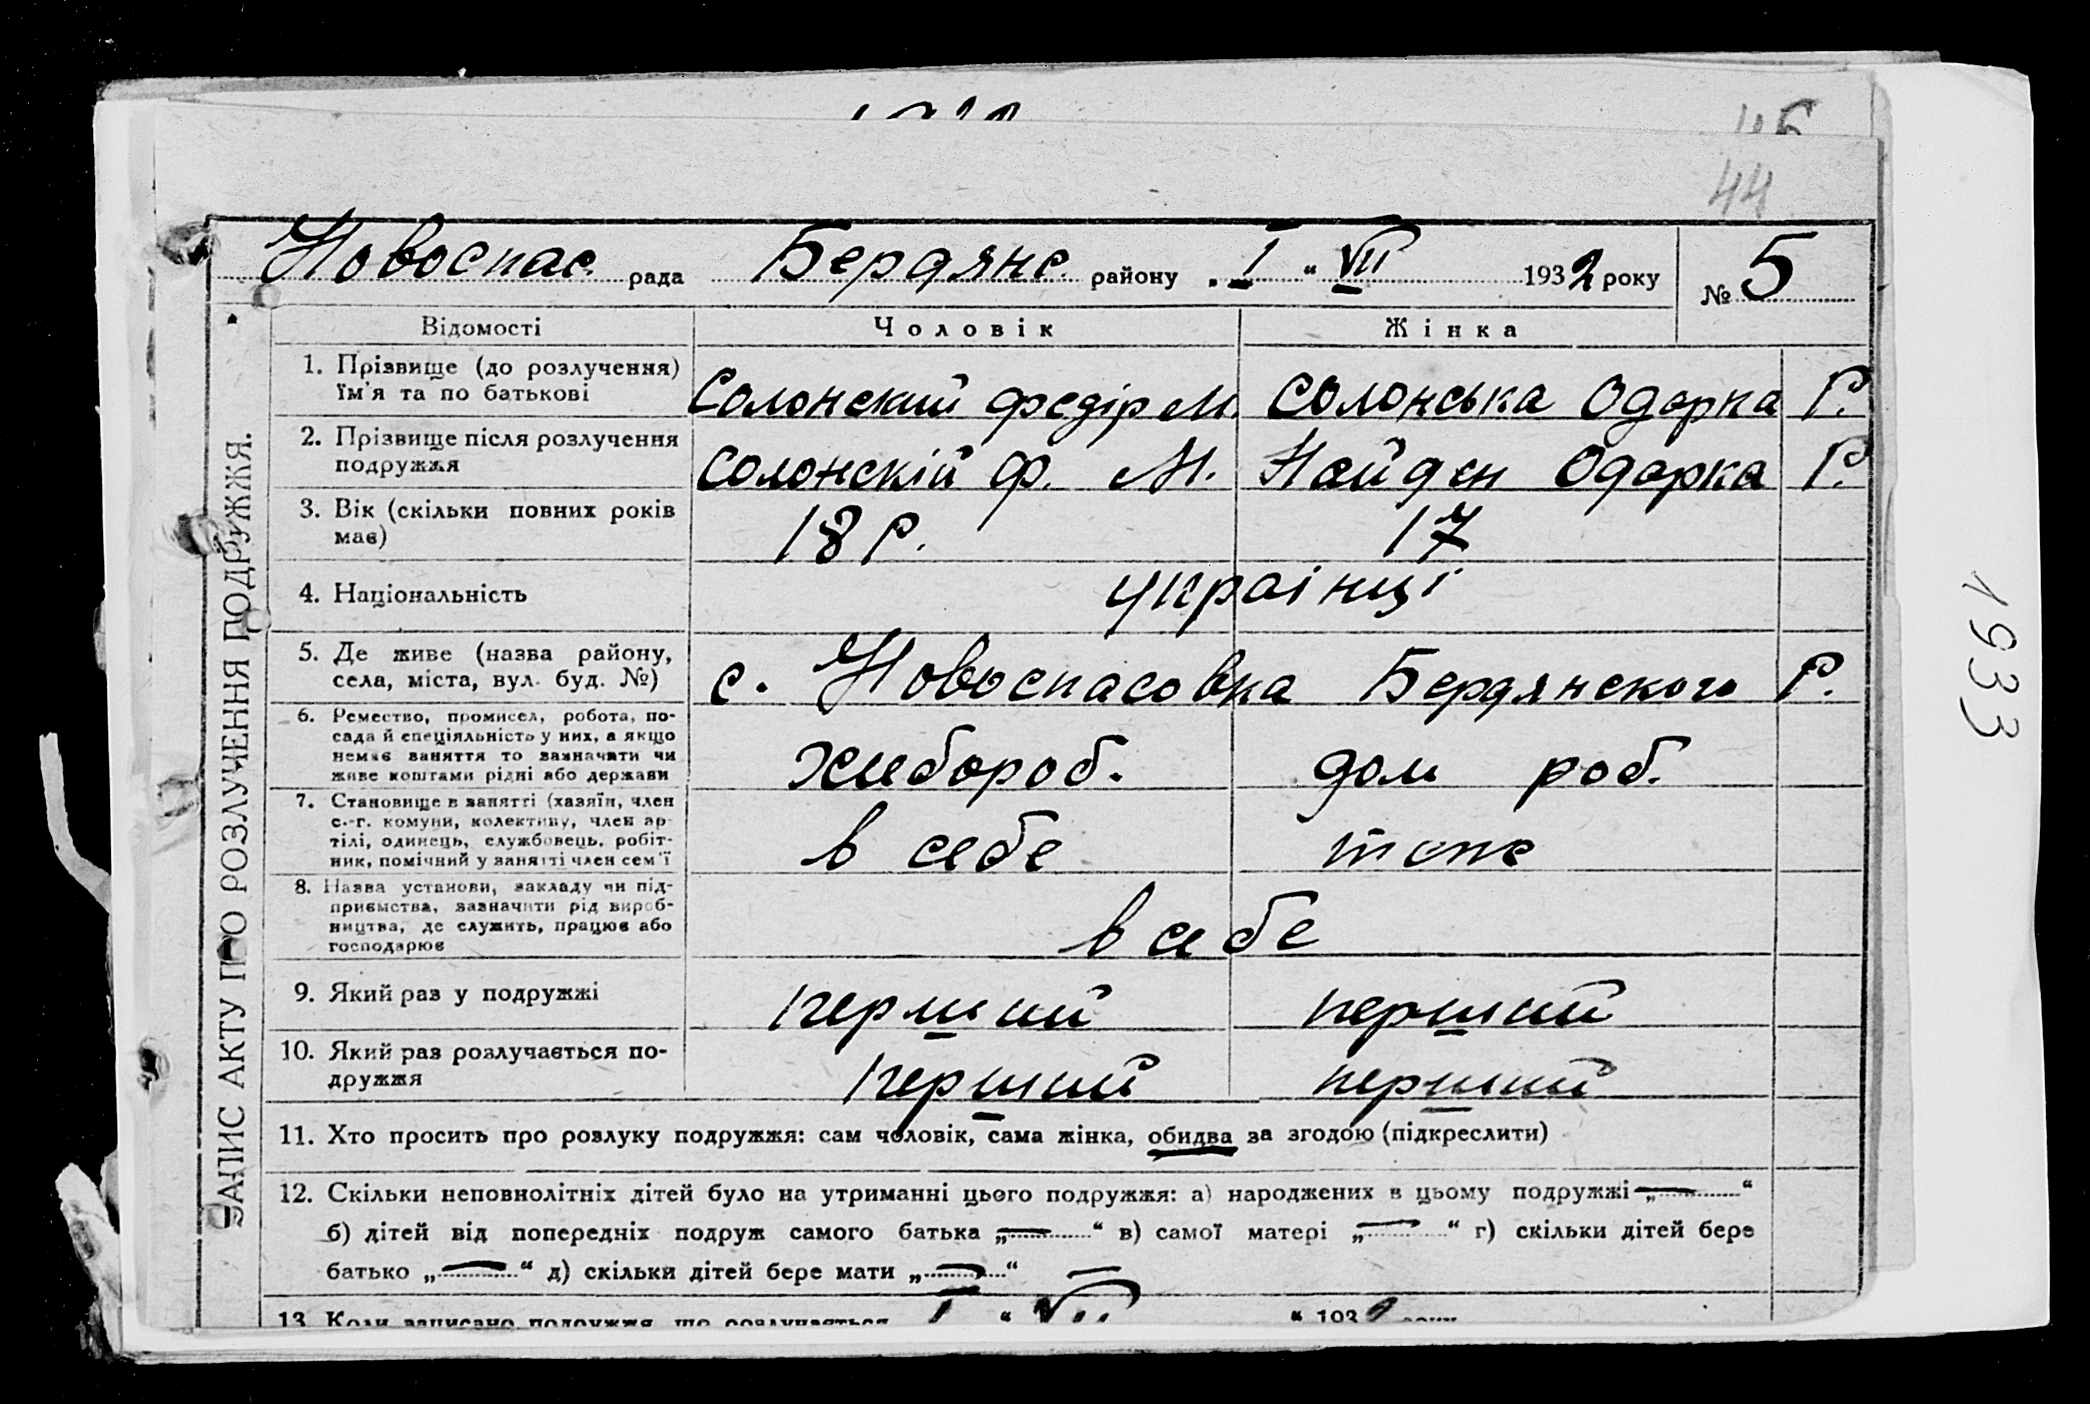 44
Новоспас. рада Бердянс. району „ I “ VII 1932 року № 5
Відомості Чоловік Жінка
1. Прізвище (до розлучення) їм'я та по батькові Солонский Федір М. Солонська Одарка Г.
2. Прізвище після розлучення подружжя Солонскій Ф. М. Найден Одарка Г.
3. Вік (скільки повних років має) 18 р. 17
4. Національність українці
5. Де живе (назва району, села, міста, вул. буд. №) с. Новоспасовка Бердянского р.
6. Ремество, промисел, робота, по-
сада й спеціяльність у них, а якщо
немає заняття то зазначити чи
живе коштами рідні або держави
хлибороб. дом роб.
7. Становище в занятті (хазяїн, член
с.-г. комуни, колективу, член ар-
тілі, одинець, службовець, робіт-
ник, помічний у занятті член сем'ї
в себе тоже
8. Назва установи, закладу чи під-
приємства, зазначити рід вироб-
ництва, де служить, працює або
господарює
в себе
9. Який раз у подружжі перший перший
10. Який раз розлучається по-
дружжя перший перший
11. Хто просить про розлуку подружжя: сам чоловік, сама жінка, обидва за згодою (підкреслити)
12. Скільки неповнолітніх дітей було на утриманні цього подружжя: а) народжених в цьому подружжі „—“
б) дітей від попередніх подруж самого батька „—“ в) самої матері „—“ г) скільки дітей бере
батько „—“ д) скільки дітей бере мати „—“ —
13. Коли записано подружжя, що розлучається I “ VII “ 193
ЗАПИС АКТУ ПРО РОЗЛУЧЕННЯ ПОДРУЖЖЯ.
1933